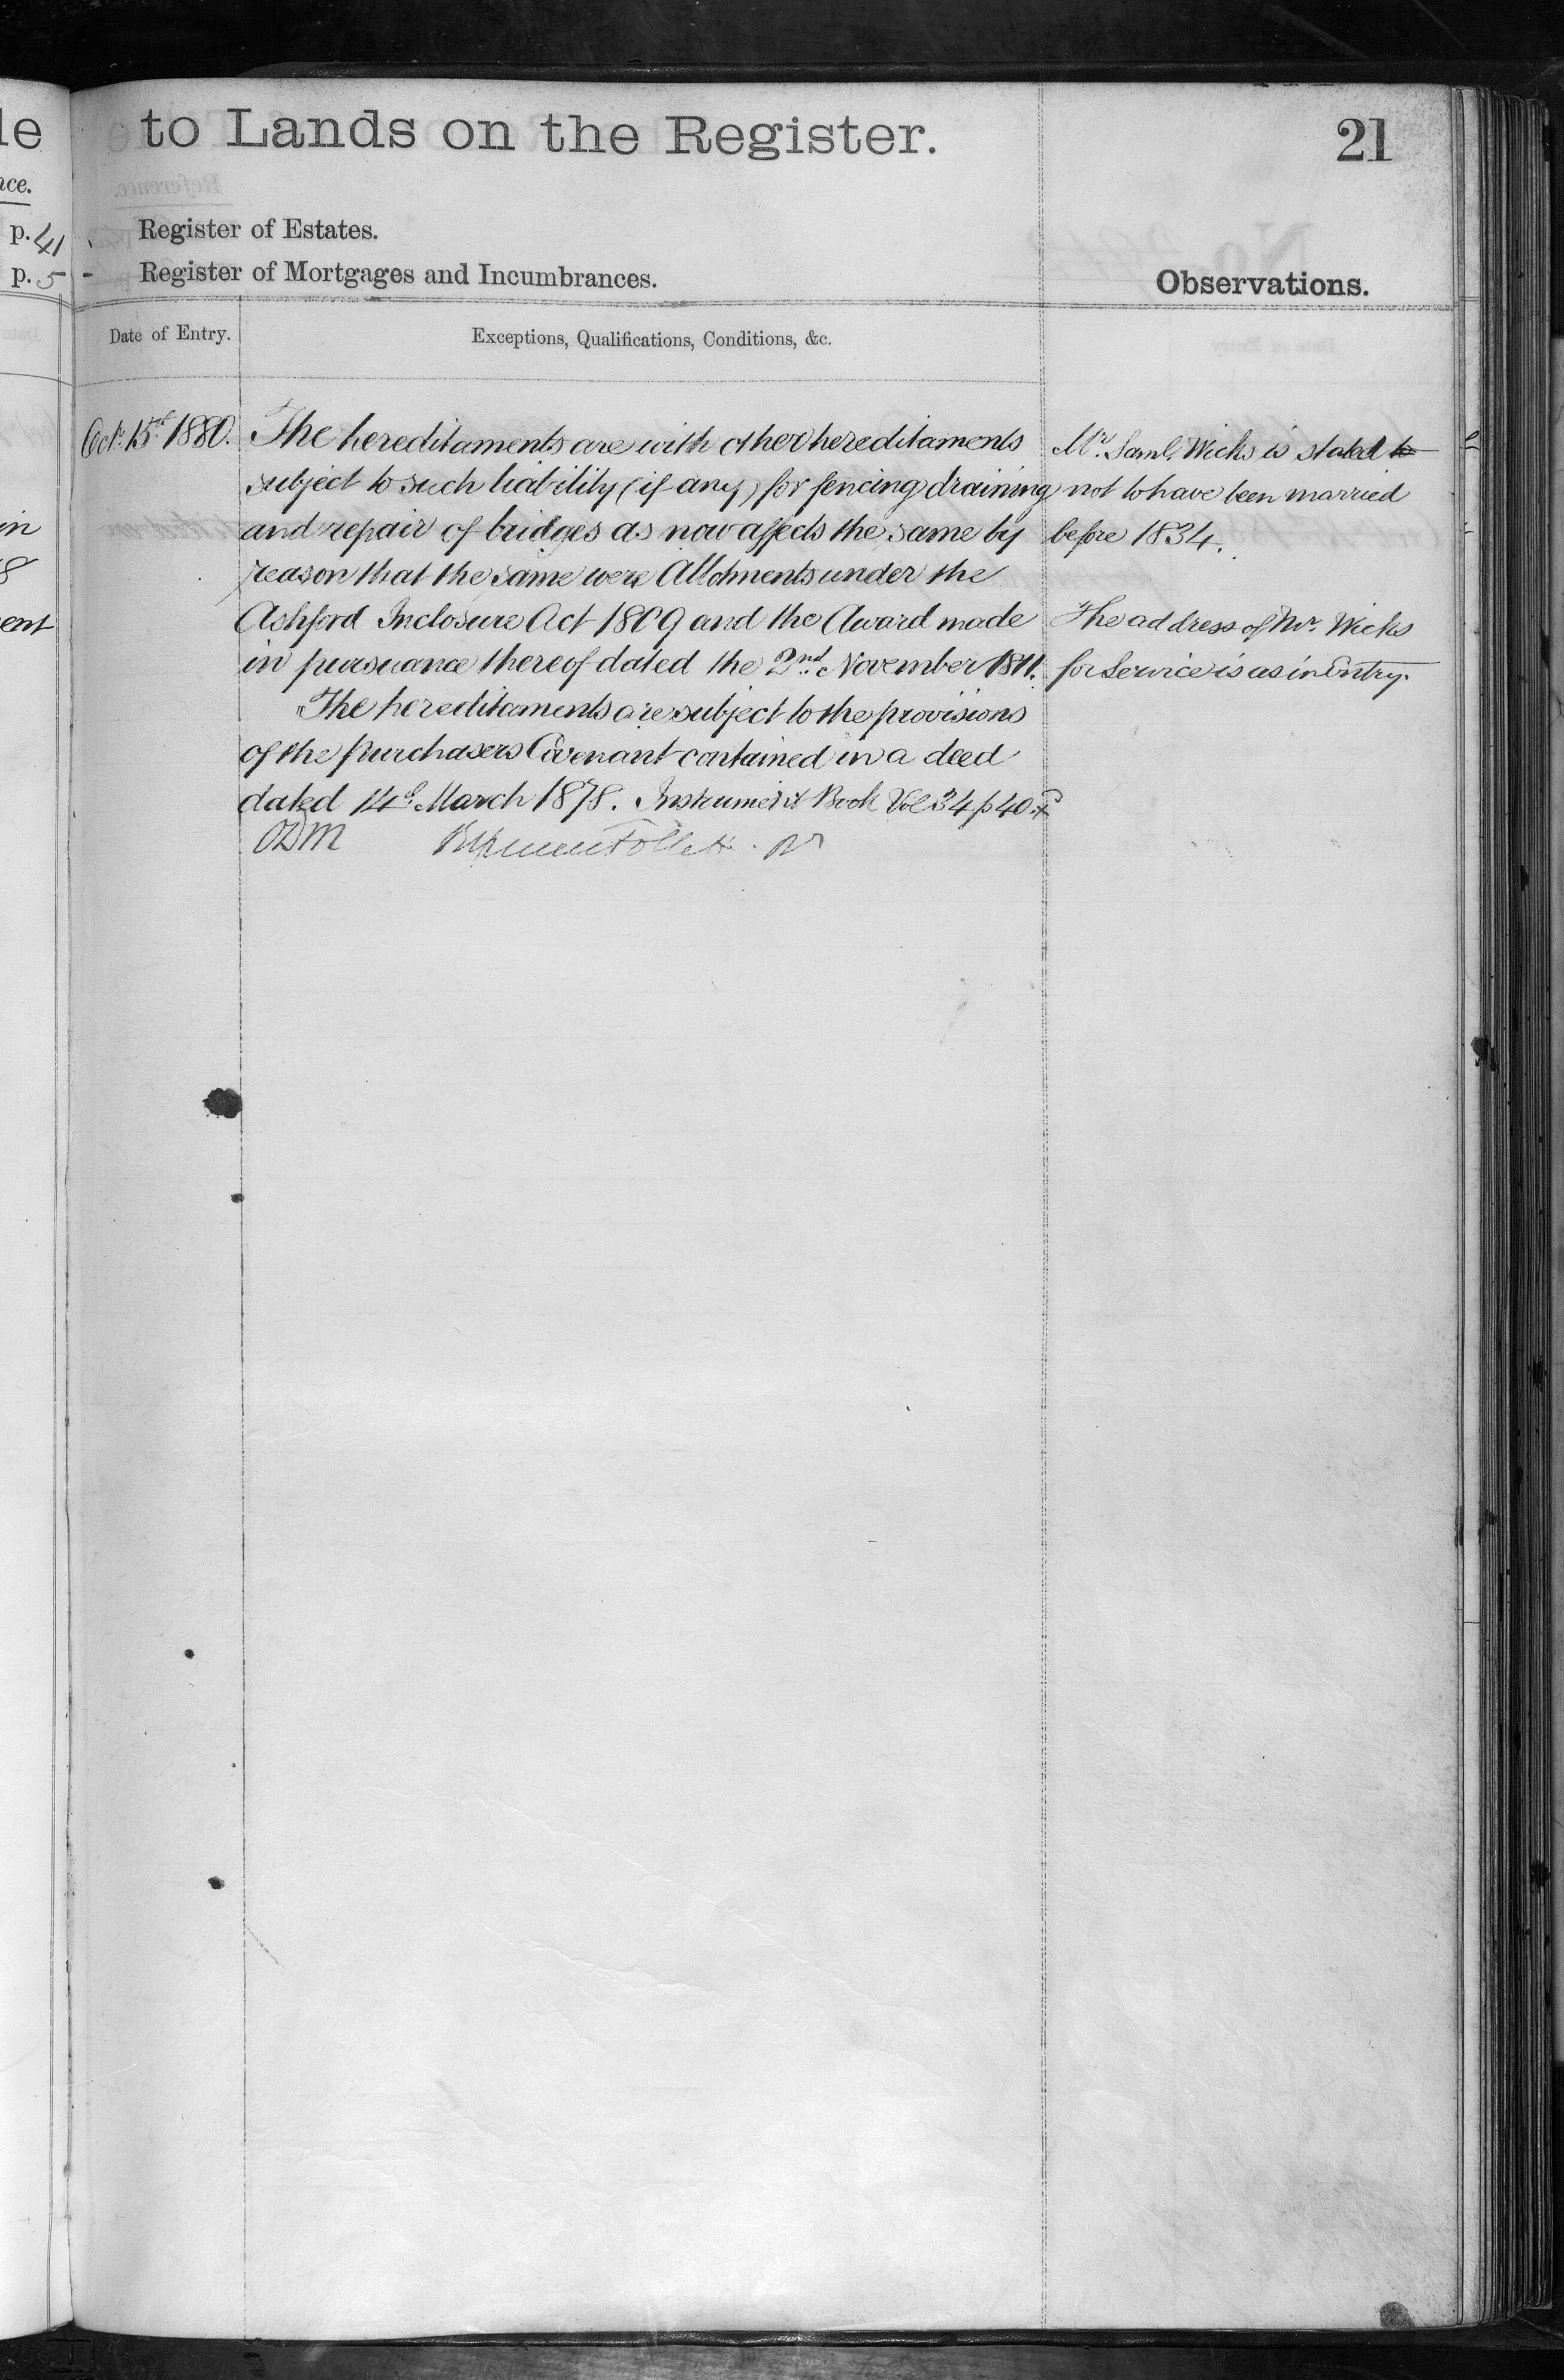 le
to Lands on the Register.
21
ce.
p. 41
Register of Estates.
p. 5 -
Register of Mortgages and Incumbrances.
Observations.
Date of Entry.
Exceptions, Qualifications, Conditions, &c.
Octr. 15th 1880.
The hereditaments are with other hereditaments
subject to such liability (if any) for fencing draining
and repair of bridges as now affects the same by
reason that the same were Allotments under the
Ashford Inclosure Act 1809 and the Award made
in pursuance thereof dated the 2nd November 1811.
The hereditaments are subject to the provisions
of the purchasers Covenant contained in a deed
dated 14th March 1878. Instrument Book Vol 34 p 40.
ODM
Mr. Saml. Wicks is stated to
not to have been married
before 1834.
The address of Mr. Wicks
for Service is as in Entry.
in
8
ent